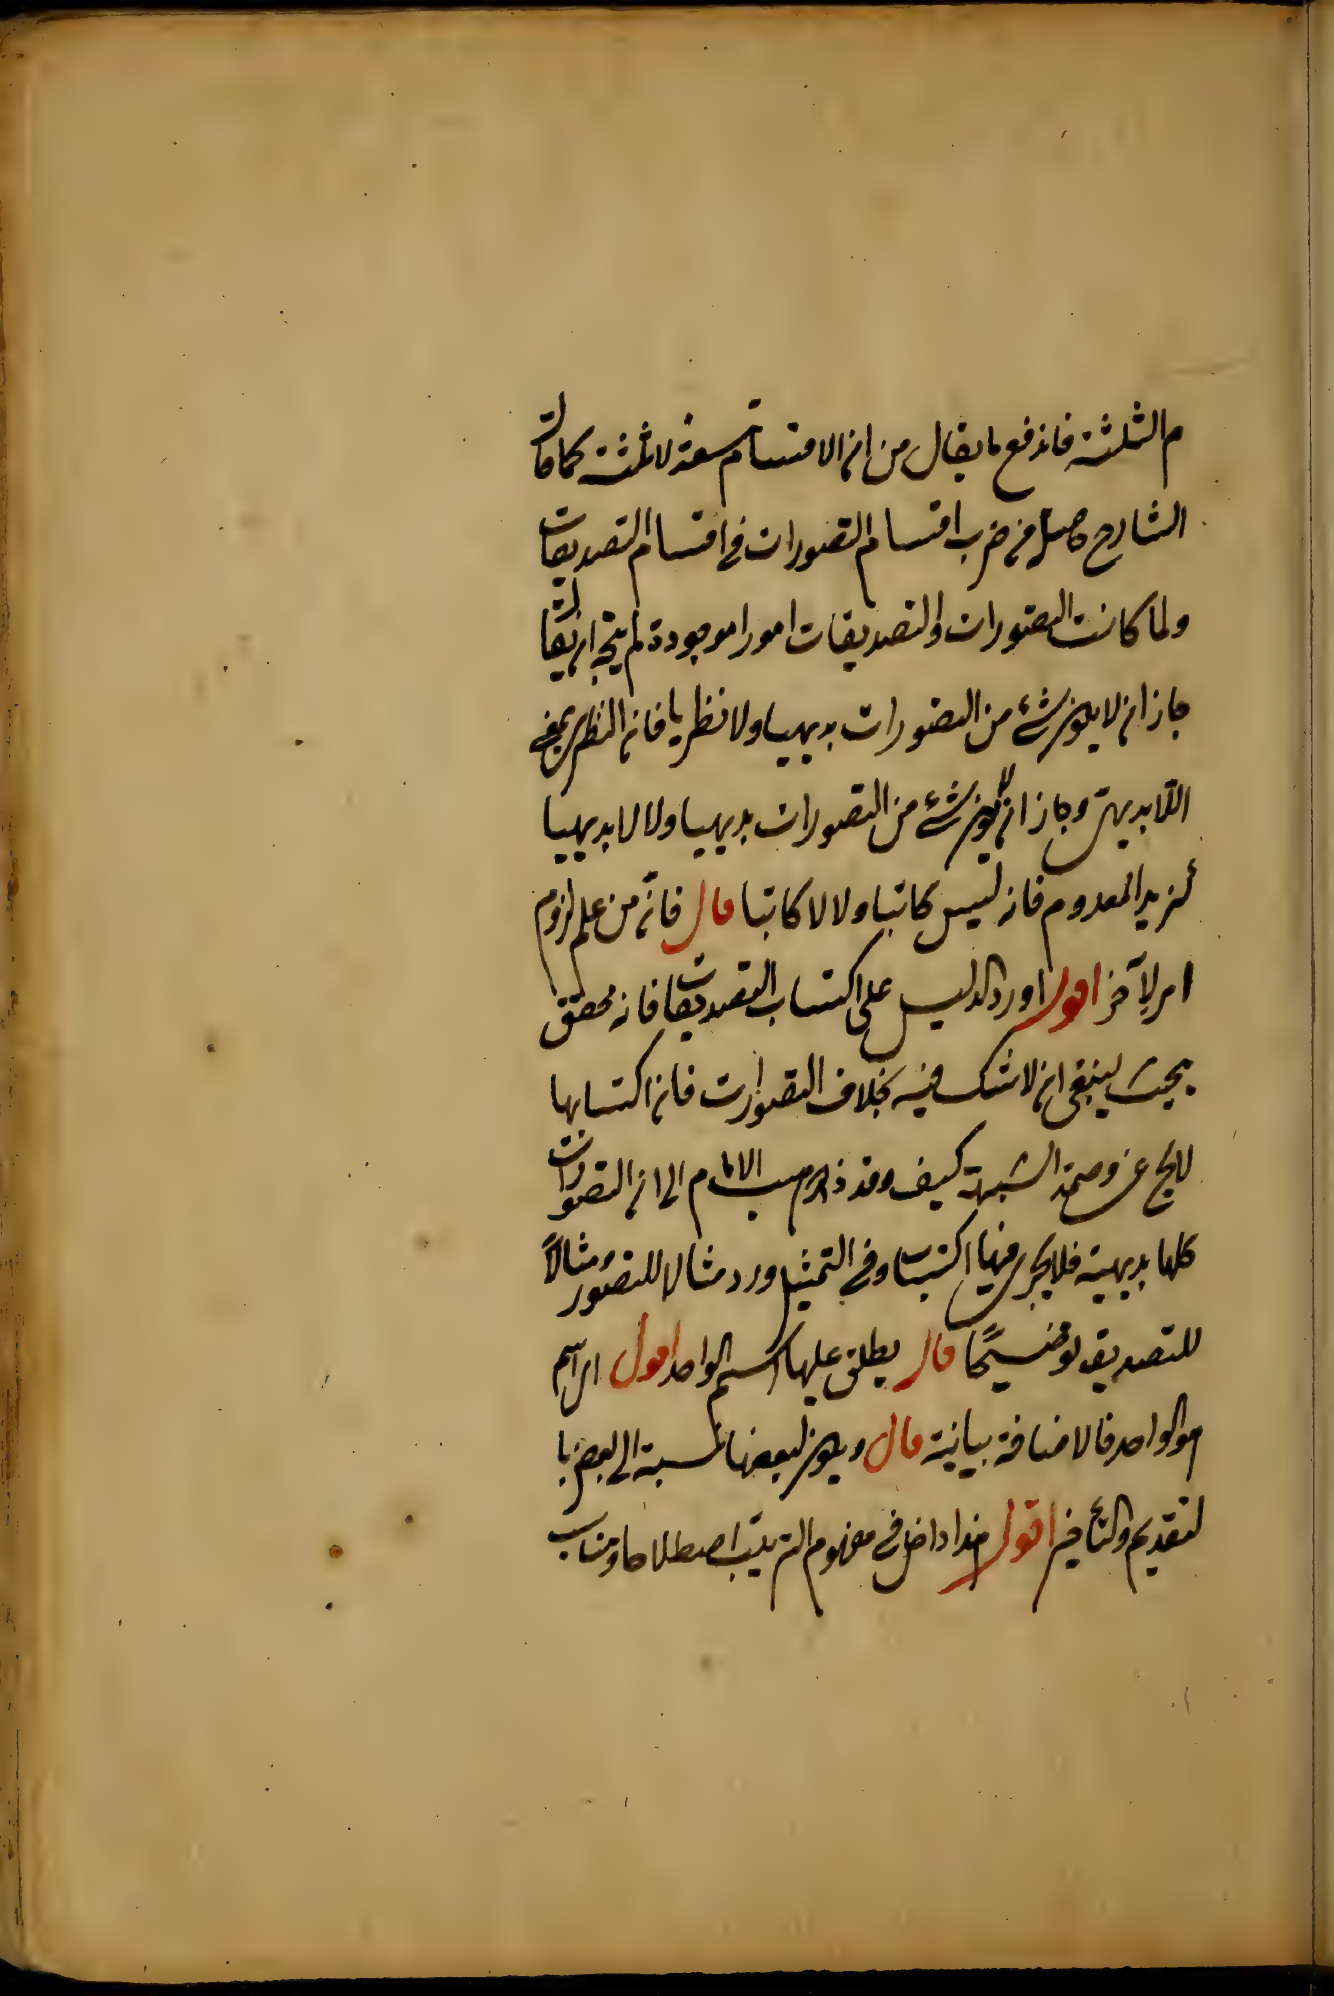 م الثلثة فاندفع ما يقال من ان الاقسام تسعة لا ثلثة كما قال
الشارح حاصله من ضرب اقسام التصورات في اقسام التصديقات
ولما كانت التصورات والتصديقات امورا موجودة لم يتجه ان يقال
جاز ان لا يكون شئ من التصورات بديهيا ولا نظريا فان النظري بمعنى
اللابديهي وجاز ان لا يكون شئ من التصورات بديهيا ولا لا بديهيا
كزيد المعدوم فانه ليس كاتبا ولا لا كاتبا قال فان من علم لزوم
امر لآخر اقول اورد الدليل على اكتساب التصديقات فانه محقق
بحيث ينبغي ان لا شك فيه بخلاف التصورات فان اكتسابها
لا يخ عن وصمة الشبهة كيف وقد ذهب الامام الى ان التصورات
كلها بديهية فلا يجري فيها اكتساب وفي التمثيل اورد مثالا للتصور ومثالاً
للتصديق توضيحًا قال يطلق عليها اسم الواحد اقول اي اسم
هو الواحد فالاضافة بيانية قال ويكون لبعضها نسبة الى البعض با
لتقديم والتأخير اقول هذا داخل في مفهوم الترتيب اصطلاحا ومناسب